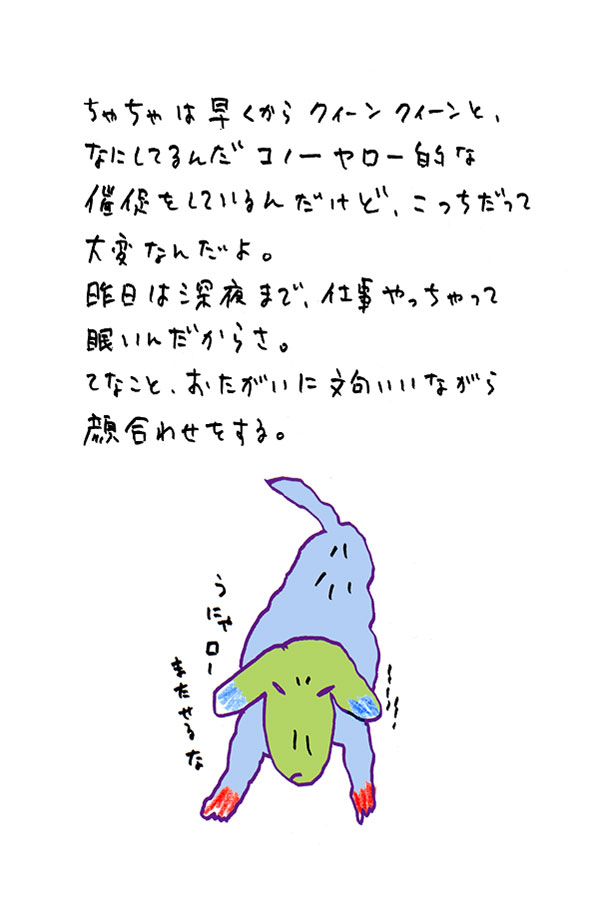 ちゃちゃは早くから クィーン クィーンと、
なにしてるんだ コノーヤロー的な
催促をしているんだけど、こっちだって
大変なんだよ。
昨日は深夜まで、仕事やっちゃって
眠いんだからさ。
てなこと、おたがいに文句いいながら
顔合わせをする。
うにゃロー
またせるな